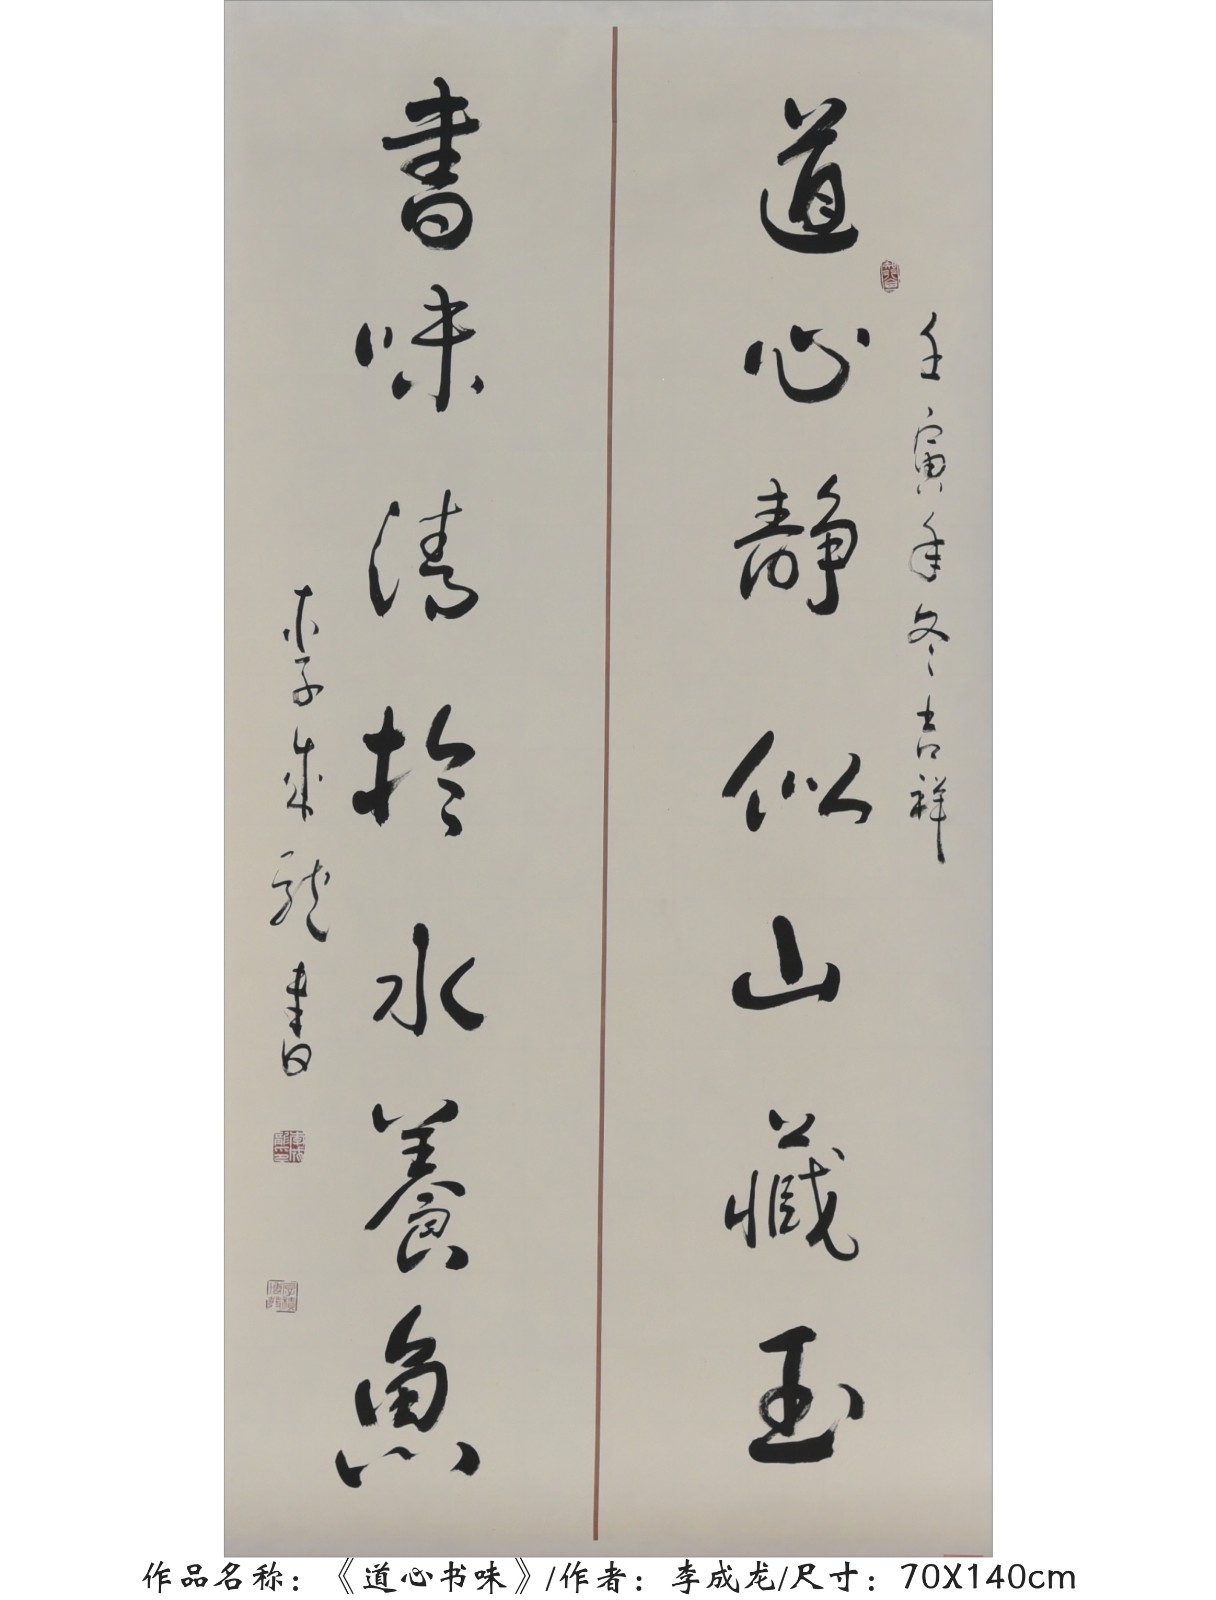 壬寅年冬吉祥
道心静似山藏玉
書味清於水養魚
李成龍書
作品名称：《道心书味》/作者：李成龙/尺寸：70X140cm